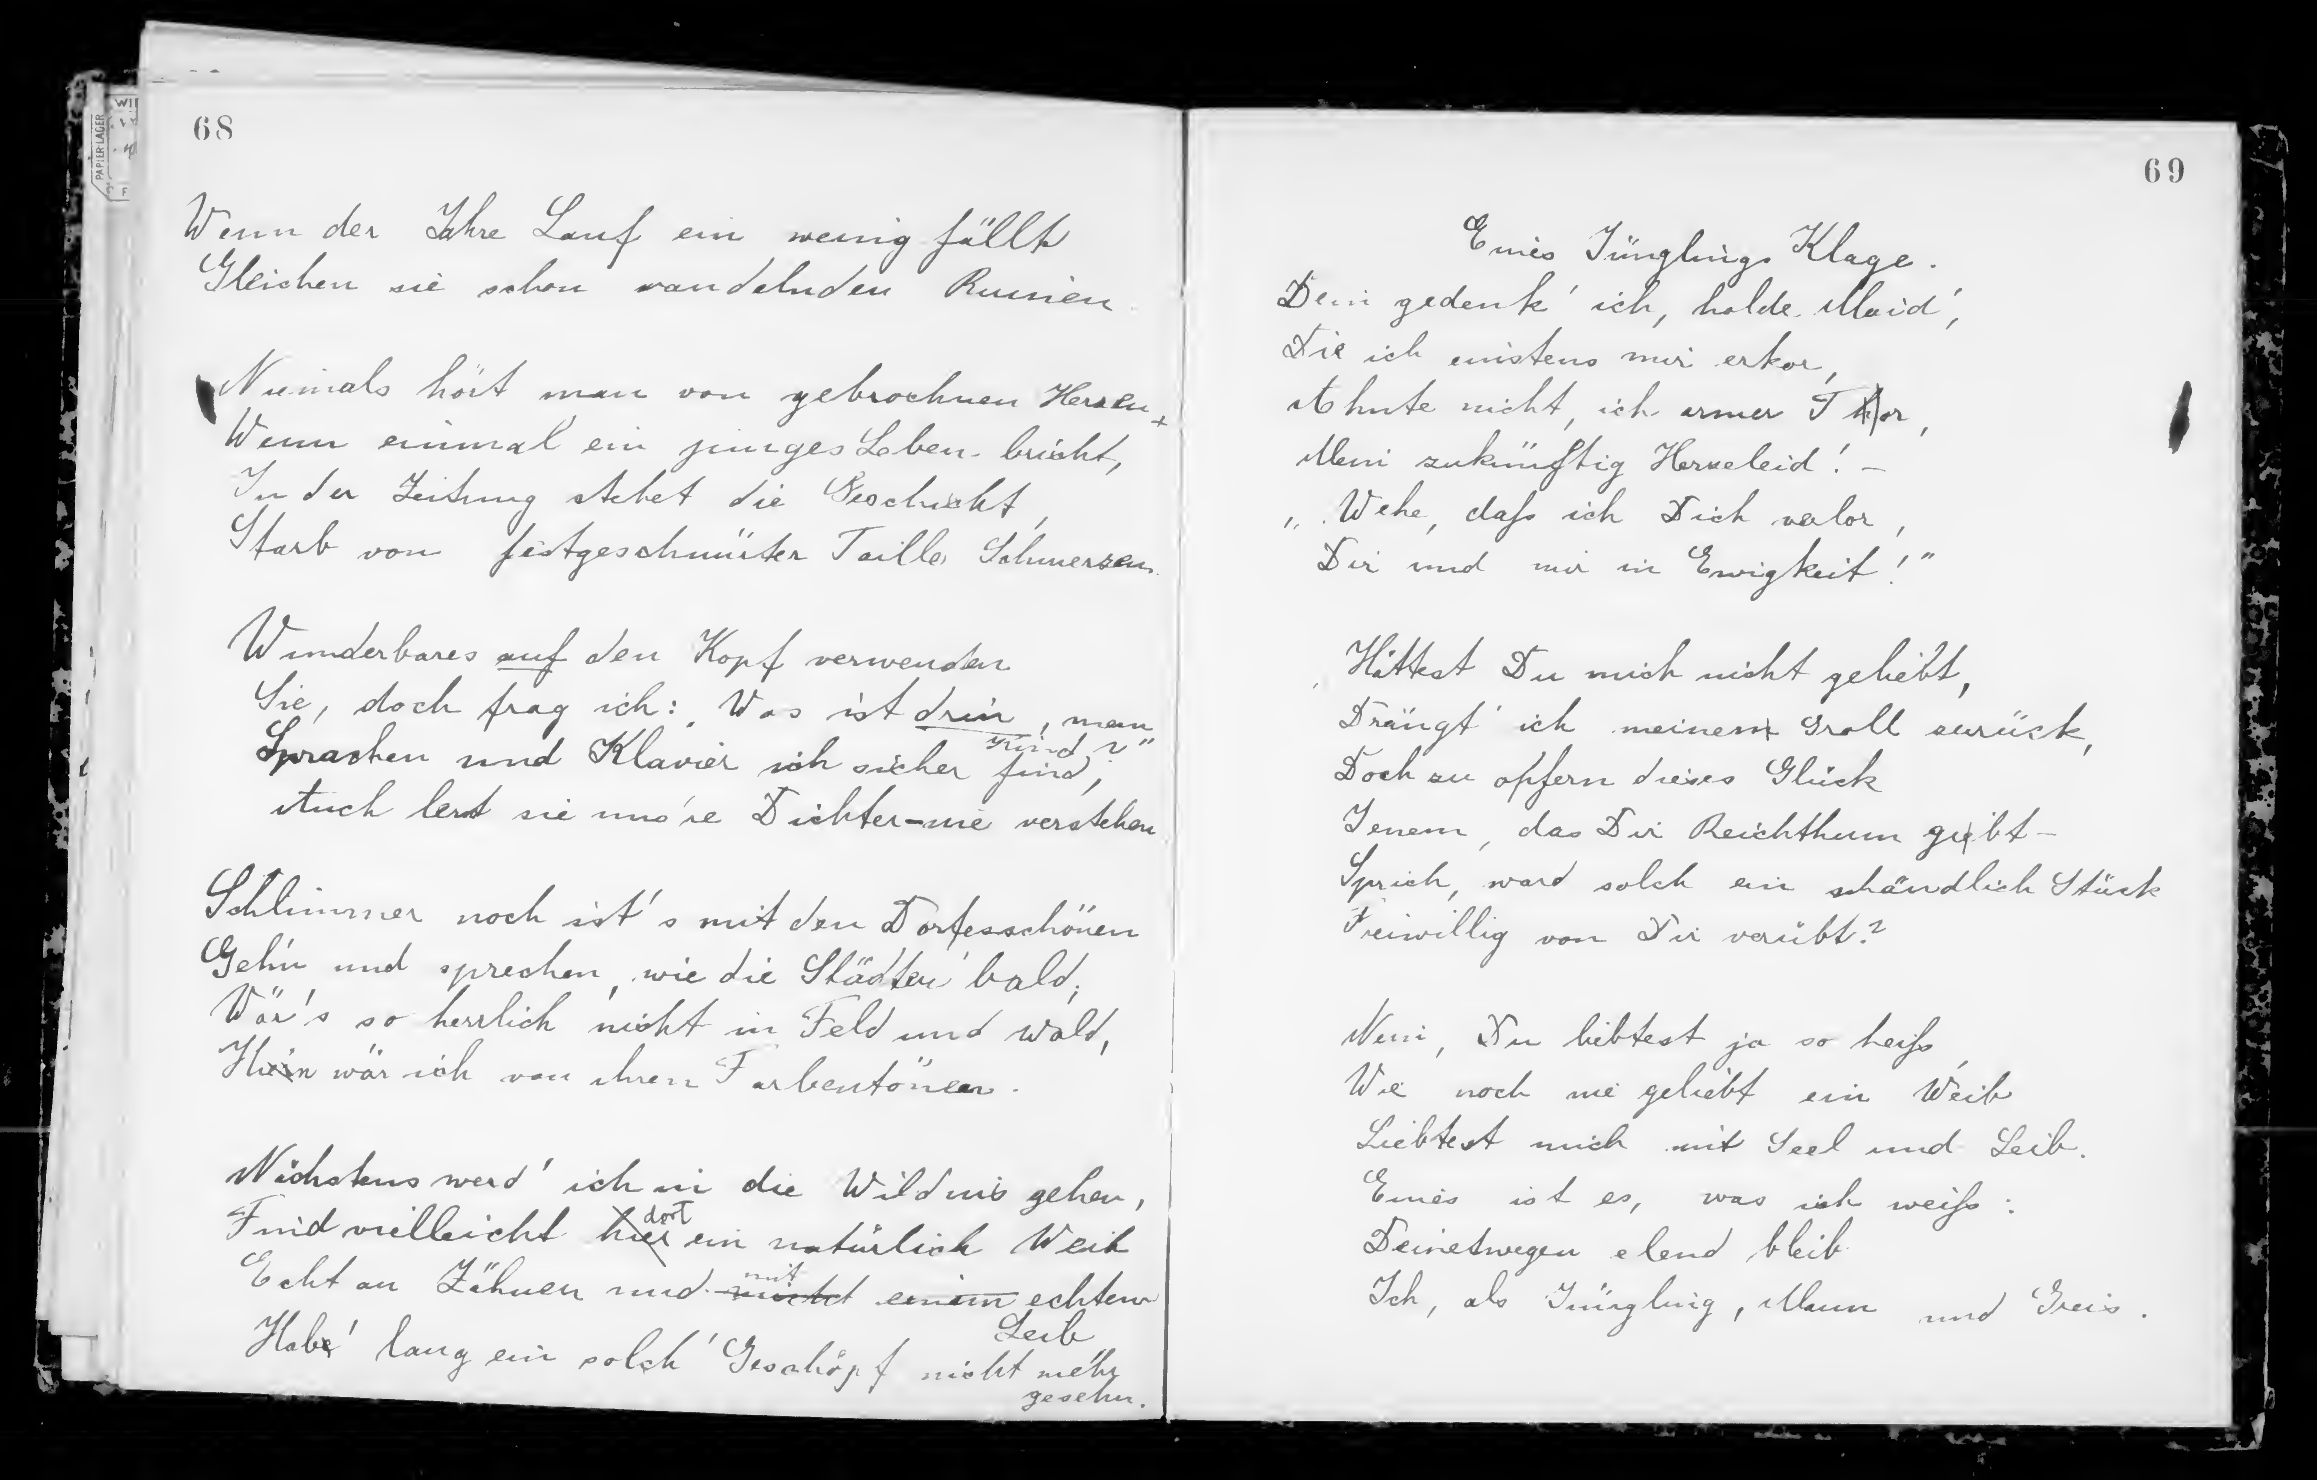 68
Wenn der Jahre Lauf ein wenig fällt
Gleichen sie schon wandelnden Ruinen
Niemals hört man von gebrochnen Herzen
Wenn einmal ein junges Leben bricht,
In der Zeitung stehet die Geschicht,
Starb von festgeschnürter Taille Schmerzen.
Wunderbares auf den Kopf verwenden
Sie, doch frag ich: „Was ist drin, mein
Kind?"
Sprachen und Klavier ich sicher find,
Auch lernt sie uns're Dichter-nie verstehen
Schlimmer noch ist's mit den Dorfesschönen
Geh'n und sprechen, wie die Städter bald,
Wär's so herrlich nicht in Feld und Wald,
Hin wär ich von ihren Farbentönen.
Nächstens werd' ich in die Wildnis gehen,
Find vielleicht hier dort ein natürlich Weib
Echt an Zähnen und mit einem echten
Leib
Hab' lang ein solch' Geschöpf nicht mehr
gesehn.
69
Eines Jünglings Klage.
Dein gedenk' ich, holde Maid',
Die ich einstens mir erkor,
Ahnte nicht, ich armer Tor,
Mein zukünftig Herzeleid! –
„Wehe, daß ich Dich verlor,
Dir und mir in Ewigkeit!"
Hättest Du mich nicht geliebt,
Drängt' ich meinen Groll zurück,
Doch zu opfern dieses Glück
Jenem, das Dir Reichthum gibt –
Sprich, ward solch ein schändlich Stück
Freiwillig von Dir verübt?
Nein, Du liebtest ja so heiß,
Wie noch nie geliebt ein Weib
Liebtest mich mit Seel und Leib.
Eines ist es, was ich weiß:
Deinetwegen elend bleib
Ich, als Jüngling, Mann und Greis.